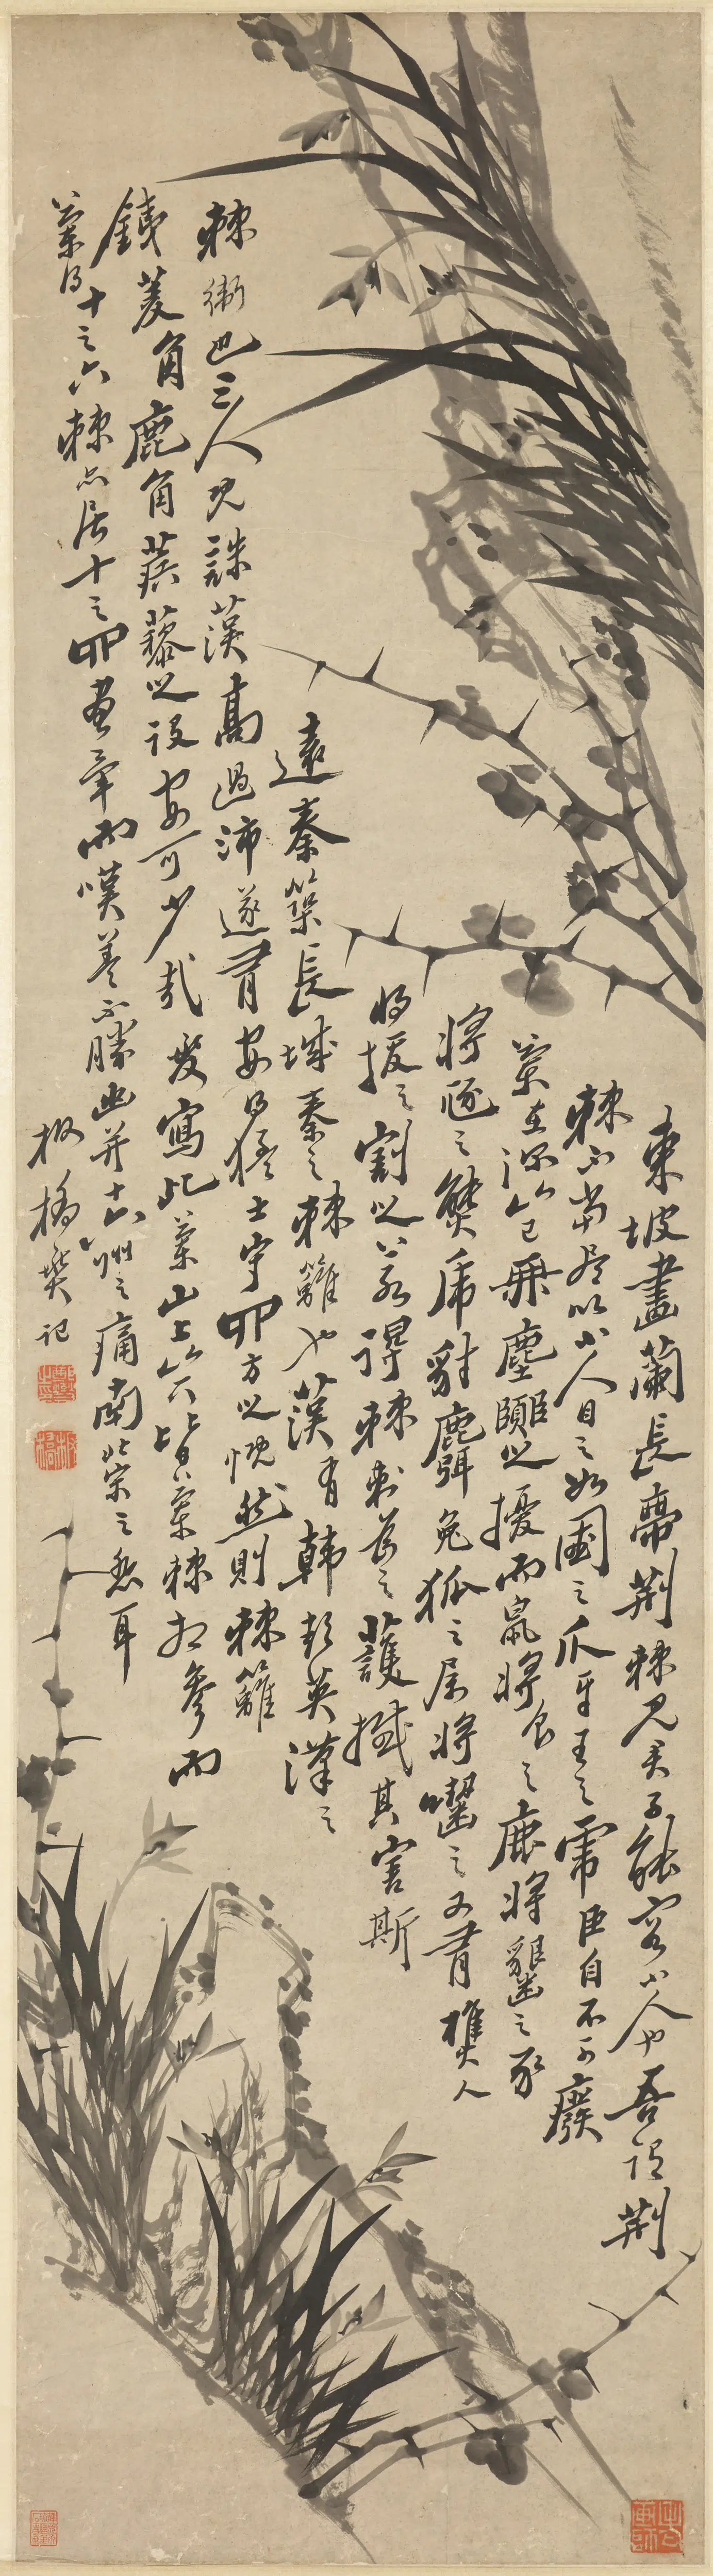 東坡畫蘭長帶荊棘見君子能容小人也吾謂荊
棘不當盡以小人目之如國之爪牙王之虎臣自不可廢
蘭在深山已無塵囂之擾而鼠將食之鹿將齧之豕
將豗之熊虎豺麛兔狐之屬將嚙之又有樵人
將拔之割之若得棘刺為之護撼其害斯
遠秦築長城秦之棘籬也漢有韓彭英漢之
棘衛也三人既誅漢高過沛遂有安得猛士守四方之慨然則棘籬
鐵菱角鹿角蒺藜之設安可少哉爰寫此蘭山上山下皆蘭棘相參而
蘭得十之六棘亦居十之四畫畢而嘆蓋不勝幽并十六州之痛南北宋之悲耳
板橋燮記
鄭燮之印
板橋